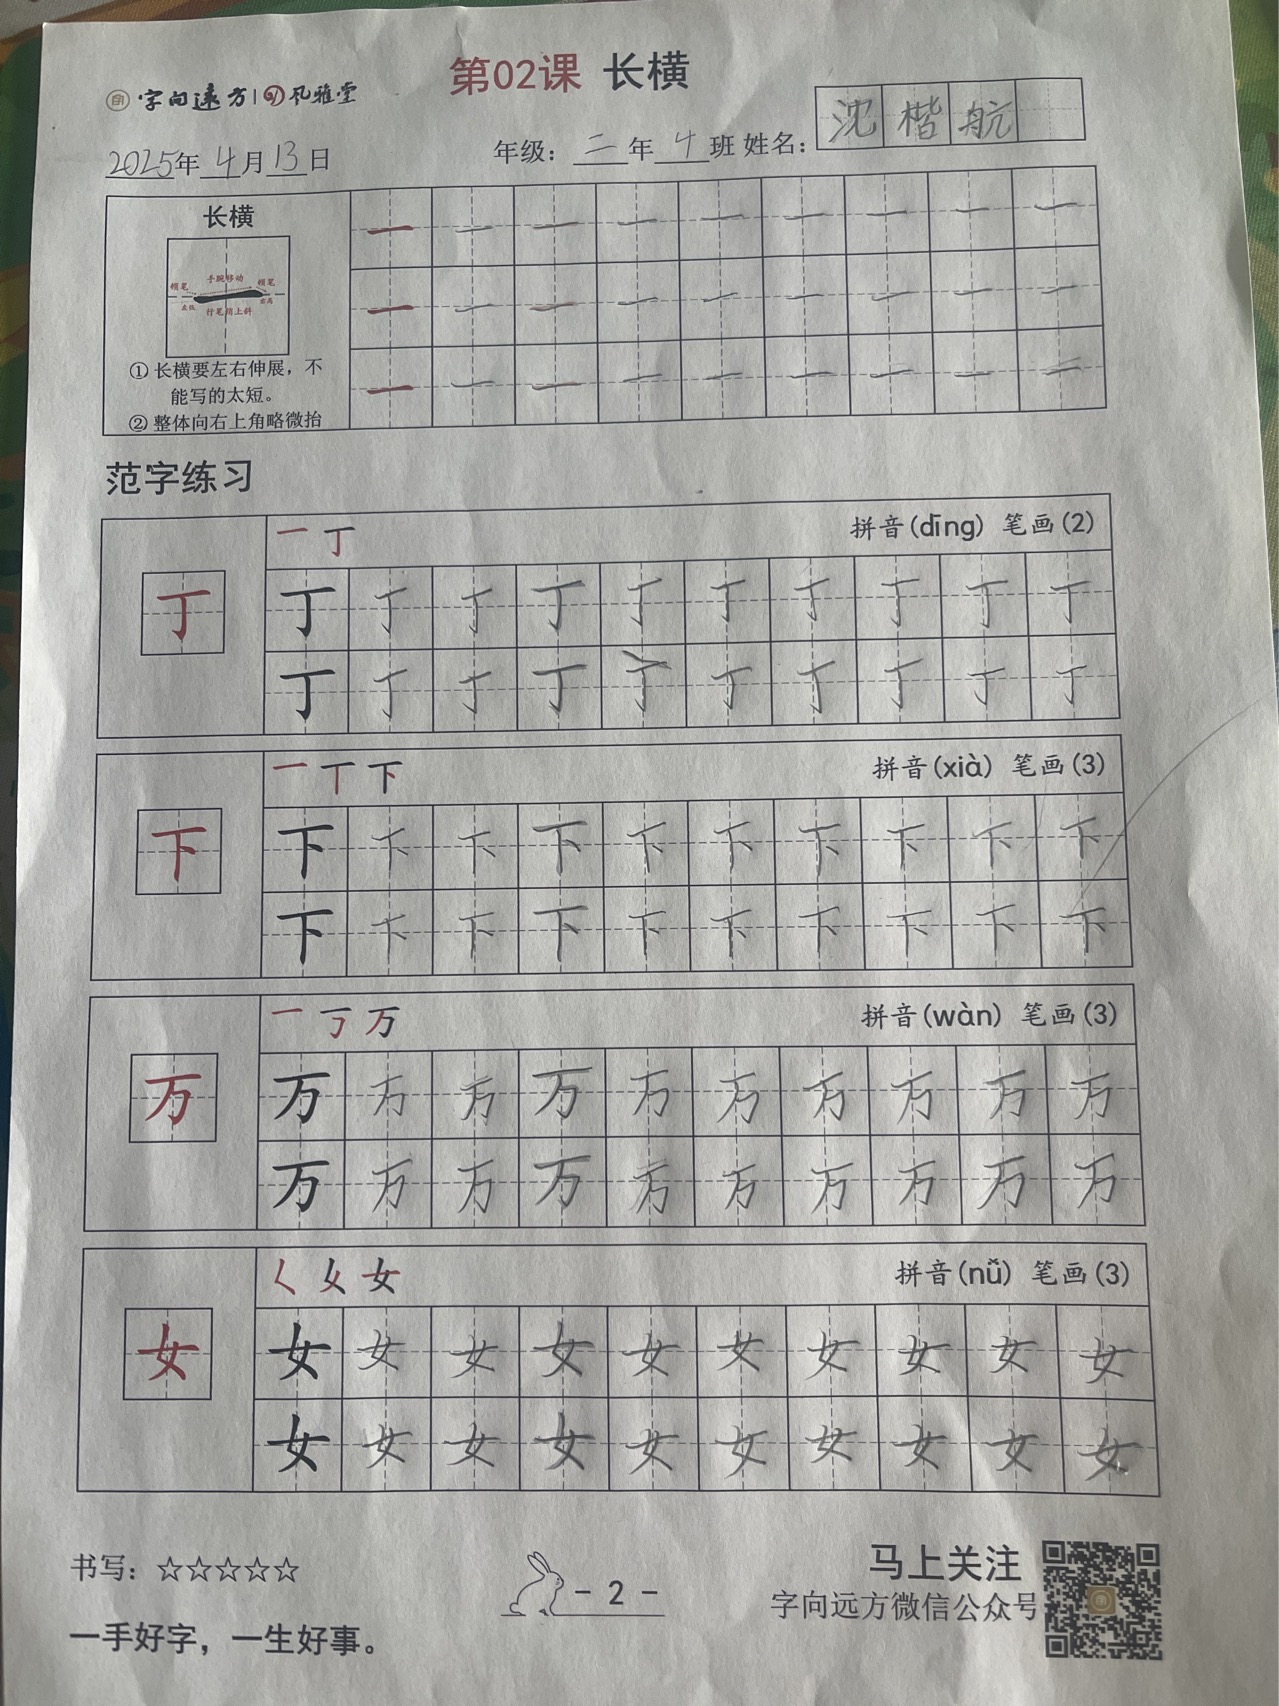 第02课 长横
字向远方 | 风雅堂
2025年4月13日 年级：二年4班 姓名：沈楷航
长横
手腕移动
顿笔 顿笔
左低 右高
行笔稍上斜
① 长横要左右伸展，不
能写的太短。
② 整体向右上角略微抬
范字练习
一 丁 拼音(dīng) 笔画(2)
丁 丁 丁 丁 丁 丁 丁 丁 丁 丁 丁
丁 丁 丁 丁 丁 丁 丁 丁 丁 丁
一 丅 下 拼音(xià) 笔画(3)
下 下 下 下 下 下 下 下 下 下 下
下 下 下 下 下 下 下 下 下 下
一 丂 万 拼音(wàn) 笔画(3)
万 万 万 万 万 万 万 万 万 万 万
万 万 万 万 万 万 万 万 万 万
𡿨 乂 女 拼音(nǚ) 笔画(3)
女 女 女 女 女 女 女 女 女 女 女
女 女 女 女 女 女 女 女 女 女
书写：☆☆☆☆☆
一手好字，一生好事。
- 2 -
马上关注
字向远方微信公众号